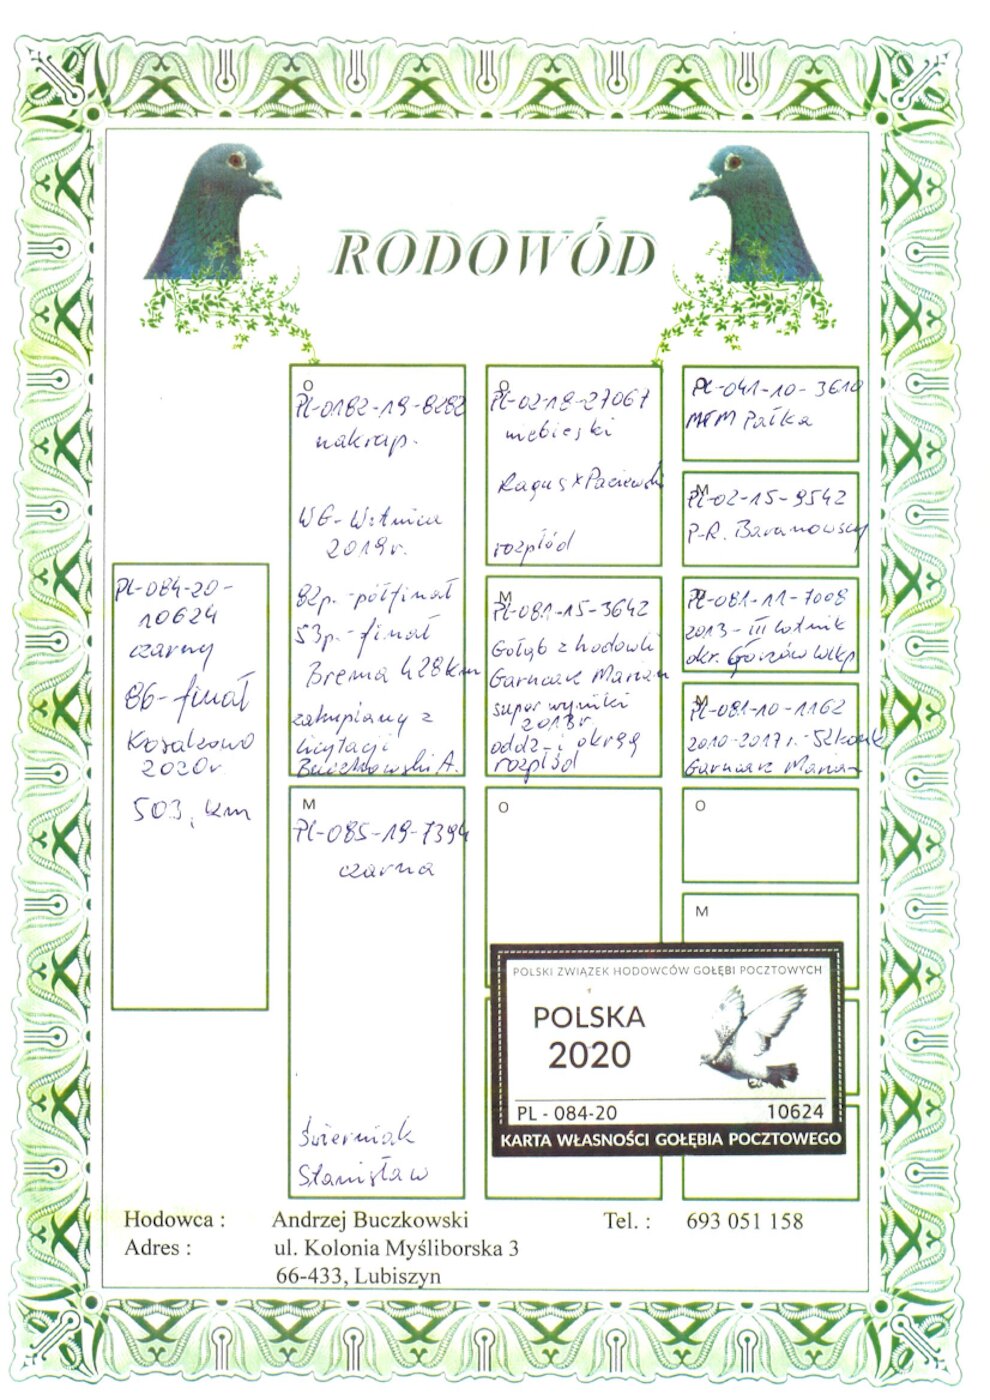 RODOWÓD
PL-084-20-
10624
czarny
86-finał
Kosakowo
2020r
503, km
O
PL-0182-19-8282
nakrap.
WG-Witnica
2019r.
82p.-półfinał
53p.-finał
Brema 428km
zakupiany z
licytacji
Buczkowski A.
M
PL-085-19-7394
czarna
Świerniak
Stanisław
O
PL-02-18-27067
niebieski
Ragus x Paciewski
rozpłód
M
PL-081-15-3642
Gołąb z hodowli
Garncarz Marian
super wyniki
2018r.
oddz-i okręg
rozpłód
O
M
O
PL-041-10-3610
MTM Pałka
M
PL-02-15-9542
P-R. Baranowscy
PL-081-11-7008
2013-III lotnik
okr. Gorzów Wlkp
M
PL-081-10-1162
2010-2017r.-52konk
Garncarz Marian
O
M
POLSKI ZWIĄZEK HODOWCÓW GOŁĘBI POCZTOWYCH
POLSKA
2020
PL - 084-20 10624
KARTA WŁASNOŚCI GOŁĘBIA POCZTOWEGO
Hodowca : Andrzej Buczkowski Tel. : 693 051 158
Adres : ul. Kolonia Myśliborska 3
66-433, Lubiszyn